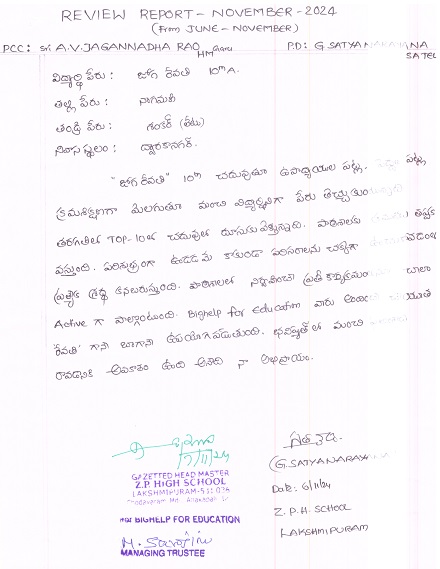 REVIEW REPORT - NOVEMBER - 2024
(From JUNE - NOVEMBER)
PCC: Sri A.V. JAGANNADHA RAO HM garu P.D: G. SATYANARAYANA
SATEL
విద్యార్థి పేరు : జోగ రేవతి 10th A.
తల్లి పేరు : నాగమణి
తండ్రి పేరు : శంకర్ (లేటు)
నివాస స్థలం : ద్వారకానగర్.
"జోగ రేవతి" 10th చదువుతూ ఉపాధ్యాయుల పట్ల, పెద్దల పట్ల
క్రమశిక్షణగా మెలగుతూ మంచి విద్యార్థినిగా పేరు తెచ్చుకుం
తరగతిలో TOP-10లో చదువులో దూసుకు వెళ్తున్నది. పాఠశాలకు తప్పక
వస్తుంది. పరిశుభ్రంగా ఉండడమే కాకుండా పరిసరాలను చక్కగా
ప్రత్యేక శ్రద్ధ కనబరుస్తుంది. పాఠశాలలో నిర్వహించే ప్రతీ కార్యక్రమం చాలా
Active గా పాల్గొంటుంది. Bighelp for education వారు అందించే
రేవతికి బాగా ఉపయోగపడుతుంది. భవిష్యత్ లో మంచి
రావడానికి అవకాశం ఉంది అనేది నా అభిప్రాయం.
7/11/24
GAZETTED HEAD MASTER
Z.P. HIGH SCHOOL
LAKSHMIPURAM-531 035
(G. SATYANARAYANA
Date: 6/11/24
Z.P.H. SCHOOL
LAKSHMIPURAM
For BIGHELP FOR EDUCATION
MANAGING TRUSTEE